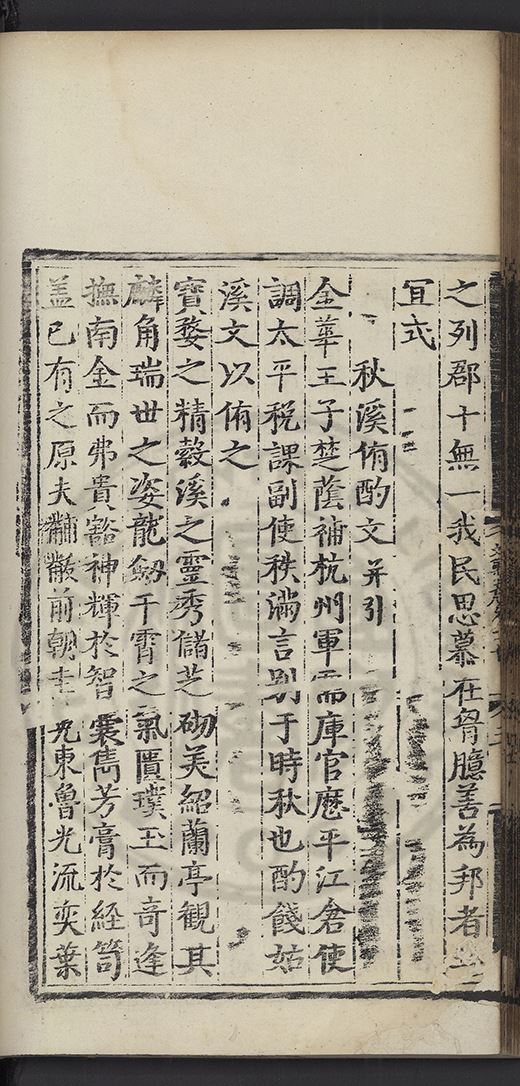 之列郡十無一我民思慕在胷臆善為邦者
宜式
秋溪侑酌文 并引
金華王子楚蔭補杭州軍需庫官歴平江倉使
調太平税課副使秩滿言别于時秋也酌餞姑
溪文以侑之
寳婺之精縠溪之靈秀儲芝砌美紹蘭亭觀其
麟角瑞世之姿龍劔干霄之氣匱璞玉而竒逢
撫南金而弗貴豁神輝於智囊雋芳膏於経笥
盖已有之原夫黼黻前朝圭 東魯光流奕葉